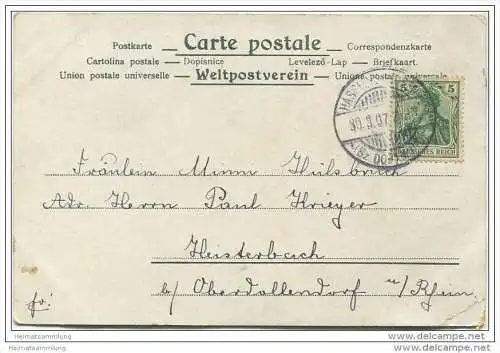 Postkarte Carte postale Correspondenzkarte
Cartolina postale – Dopisnice Levelező-Lap – Briefkaart.
Union postale universelle – Weltpostverein – Unione postale universale
5 5
30.3.07
DEUTSCHES REICH
Fräulein Minna Hülsbruch
Adr. Herrn Paul Krieger
Heisterbach
b/ Oberdollendorf a/Rhein
fr.
Heimatsammlung
Heimatsammlung
www.delcampe.net